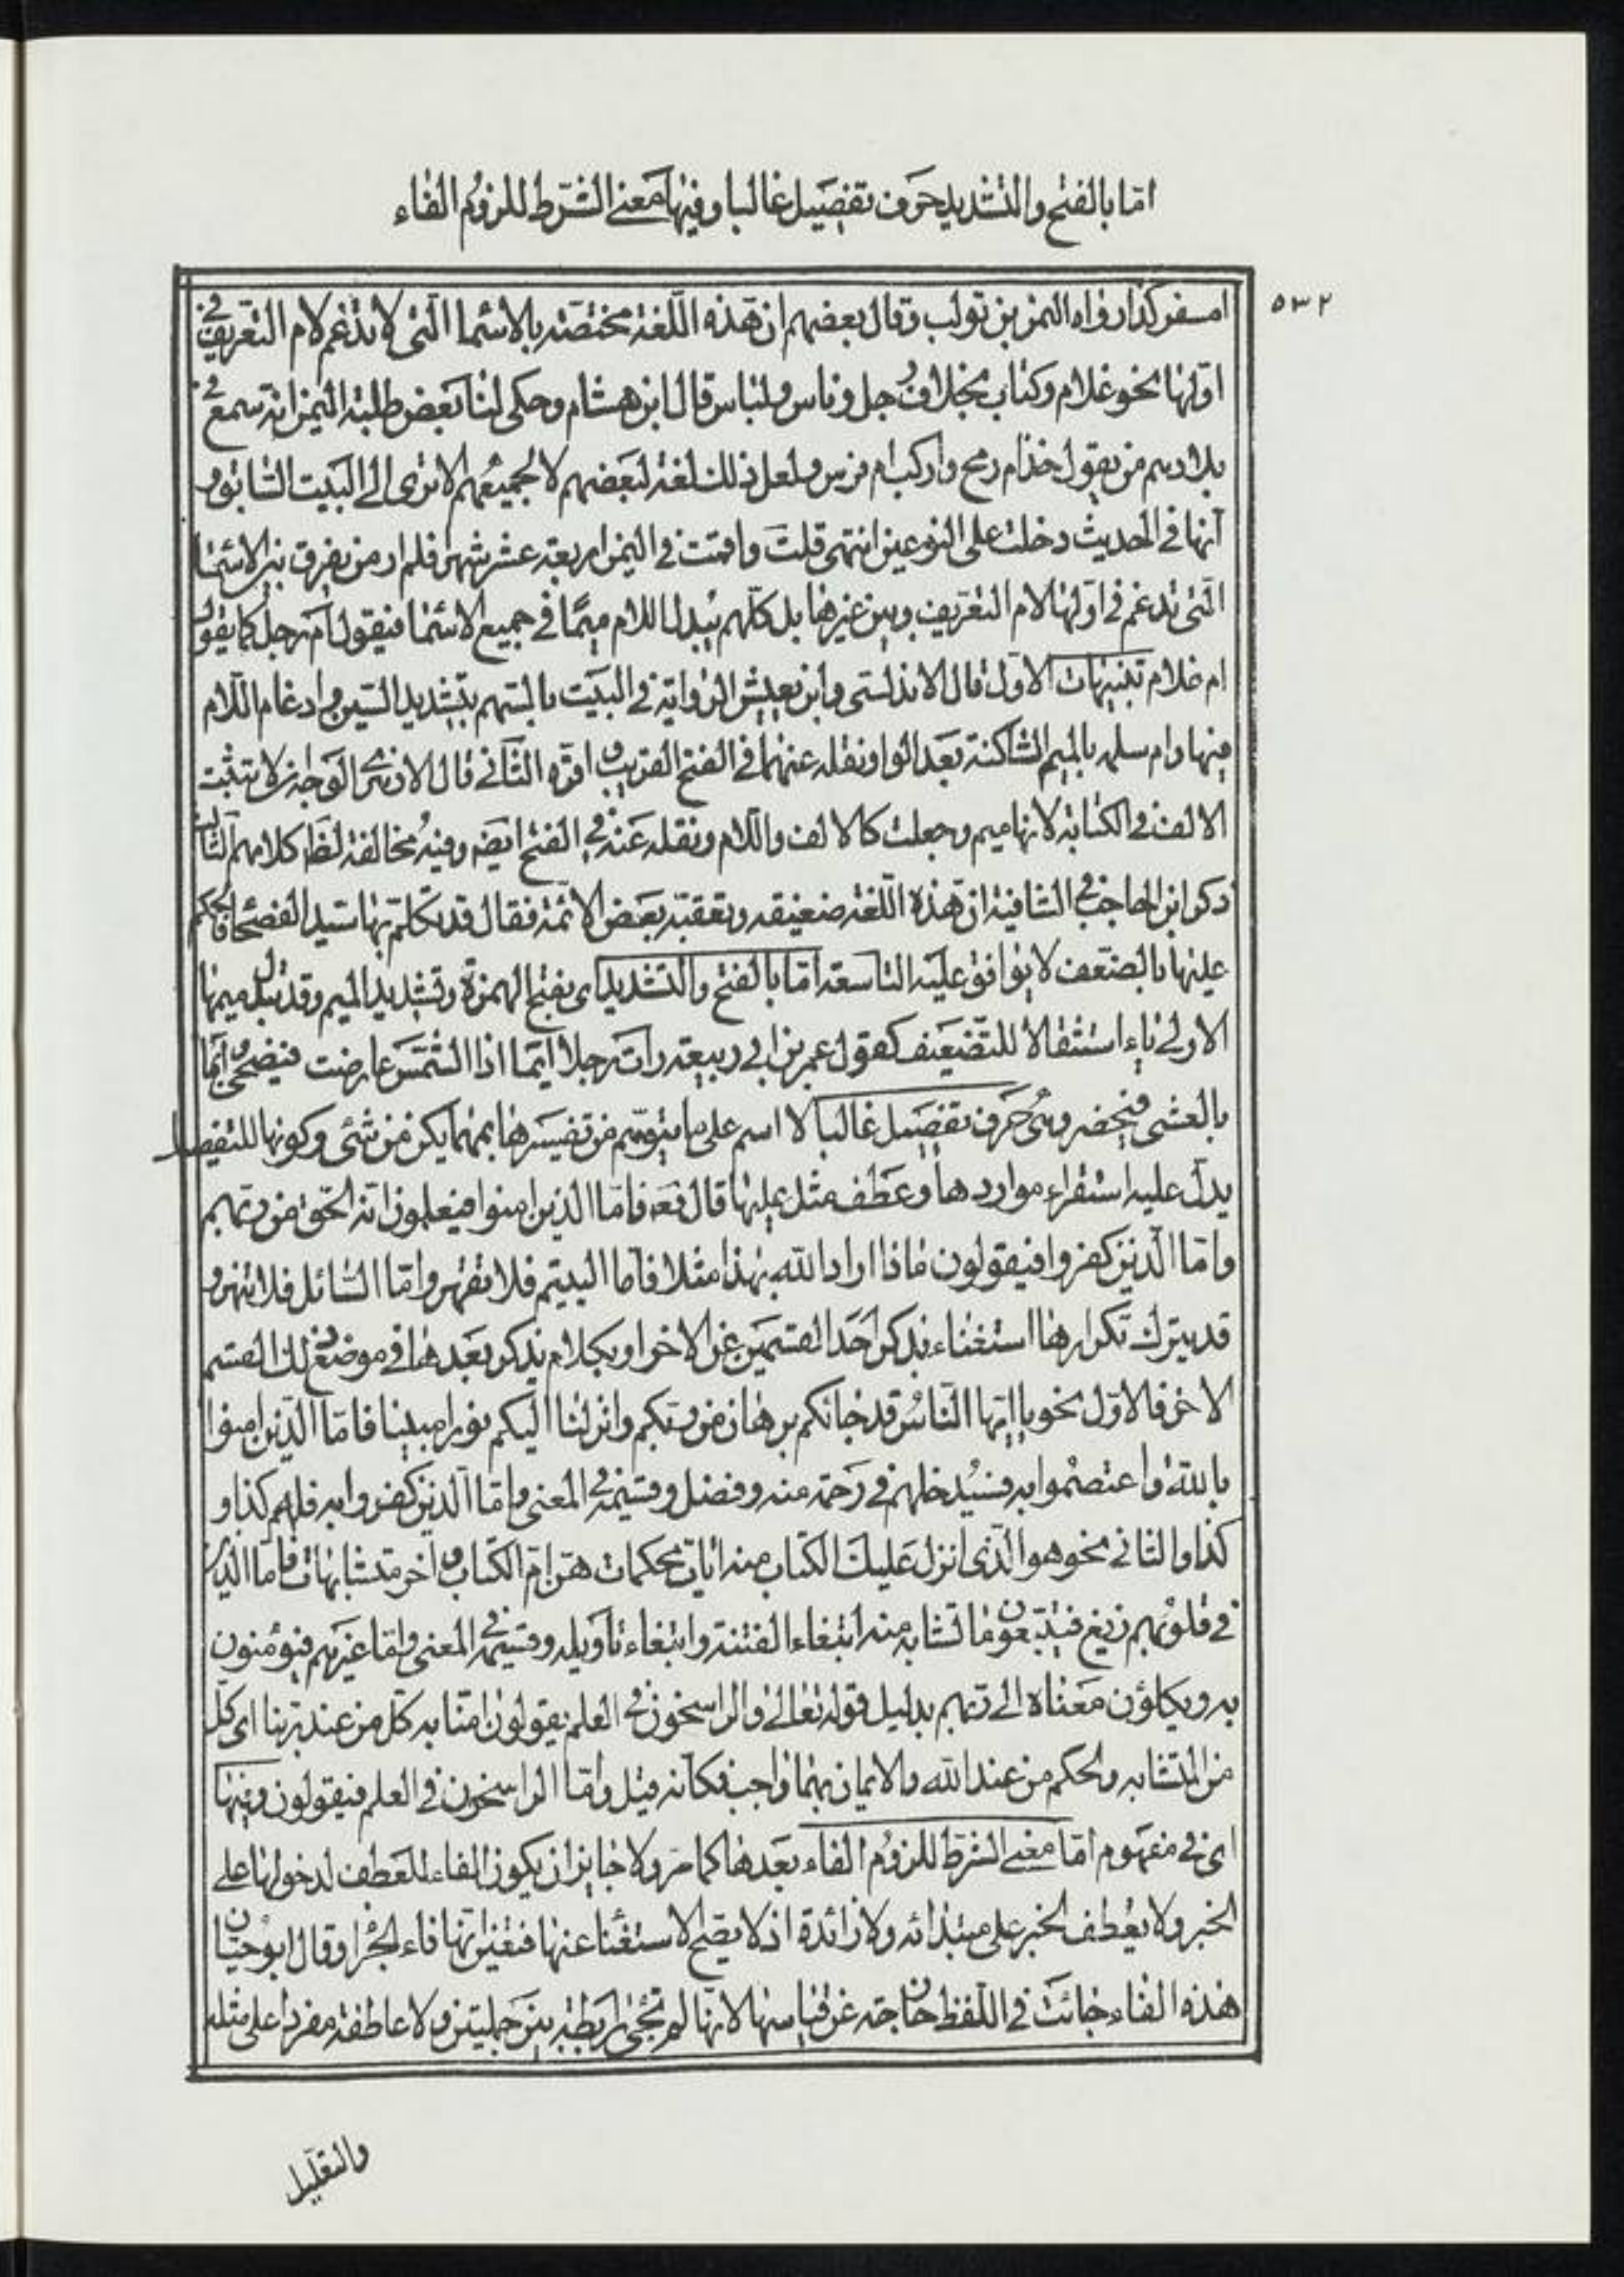 اما بالفتح والتشديد حرف تفصيل غالبا وفيها معنى الشرط للزوم الفاء
٥٣٢
امسفر كذا رواه النمر بن تولب وقال بعضهم ان هذه اللغة مختصة بالاسما التى لا تدغم لام التعريف فى
اولها نحو غلام وكتاب بخلاف رجل وناس ولباس قال ابن هشام وحكى لنا بعض طلبة اليمن انه سمع فى
بلادهم من يقول خذ ام رمح واركب ام فرس ولعل ذلك لغة لبعضهم لا لجميعهم الا ترى الى البيت السابق و
انها فى الحديث دخلت على النوعين انتهى قلت واقمت فى اليمن اربعة عشر شهر فلم ار من يفرق بين الاسما
التى تدغم فى اولها لام التعريف وبين غيرها بل كلهم يبدل اللام ميما فى جميع الاسما فيقول ام رجل كما يقول
ام غلام تنبيهات الاول قال الاندلسى وابن يعيش الرواية فى البيت بالسهم بتشديد السين وادغام اللام
فيها وام سلمه بالميم الساكنة بعد الواو ونقله عنهما فى الفتح القريب واقره الثانى قال الازهرى الوجه ان لا تثبت
الالف فى الكتابة لانها ميم وجعلت كالالف واللام ونقله عنه فى الفتح ايضه وفيه مخالفة لظا كلامهم الثالث
ذكر ابن الحاجب فى الشافية ان هذه اللغة ضعيفه وتعقبه بعض الائمة فقال قد تكلم بها سيد الفصحا فالحكم
عليها بالضعف لا يوافق عليه التاسعة اما بالفتح والتشديد اى بفتح الهمزة وتشديد الميم وقد تبدل ميمها
الاولى ياء استثقالا للتضعيف كقول عمر بن ابى ربيعة رات رجلا ايما اذا الشمس عارضت فيضحى وايما
بالعشى فيخضر وهى حرف تفصيل غالبا لا اسم على ما يتوهم من تفسيرها بمهما يكن من شئى وكونها للتفصيل
يدل عليه استقراء مواردها وعطف مثل عليها قال تعه فاما الذين امنوا فيعلمون انه الحق من ربهم
واما الذين كفروا فيقولون ماذا اراد الله بهذا مثلا فاما اليتيم فلا تقهر واما السائل فلا تنهر و
قد يترك تكرارها استغناء بذكر احد القسمين عن الاخر او بكلام يذكر بعدها فى موضع ذلك القسم
الاخر فالاول نحو يا ايها الناس قد جائكم برهان من ربكم وانزلنا اليكم نورا مبينا فاما الذين امنوا
بالله واعتصموا به فسيدخلهم فى رحمة منه وفضل وقسيمه فى المعنى واما الذين كفروا به فلهم كذا و
كذا والثانى نحو هو الذى انزل عليك الكتاب منه ايات محكمات هن ام الكتاب واخر متشابهات فاما الذين
فى قلوبهم زيغ فيتبعون ما تشابه منه ابتغاء الفتنة وابتغاء تاويله وقسيمه فى المعنى واما غيرهم فيؤمنون
به ويكلون معناه الى ربهم بدليل قوله تعالى والراسخون فى العلم يقولون امنا به كل من عند ربنا اى كل
من المتشابه والحكم من عند الله والايمان بهما واجب فكانه قيل واما الراسخون فى العلم فيقولون وفيها
اى فى مفهوم اما معنى الشرط للزوم الفاء بعدها كما مر ولا جايز ان يكون الفاء للعطف لدخولها على
الخبر ولا يعطف الخبر على مبتدائه ولا زائدة اذ لا يصح الاستغنا عنها فتعين انها فاء الجزا وقال ابو حيان
هذه الفاء جائت فى اللفظ خارجة عن قياسها لانها لم تجئ رابطة بين جملتين ولا عاطفة مفردا على مثله
والتعليل